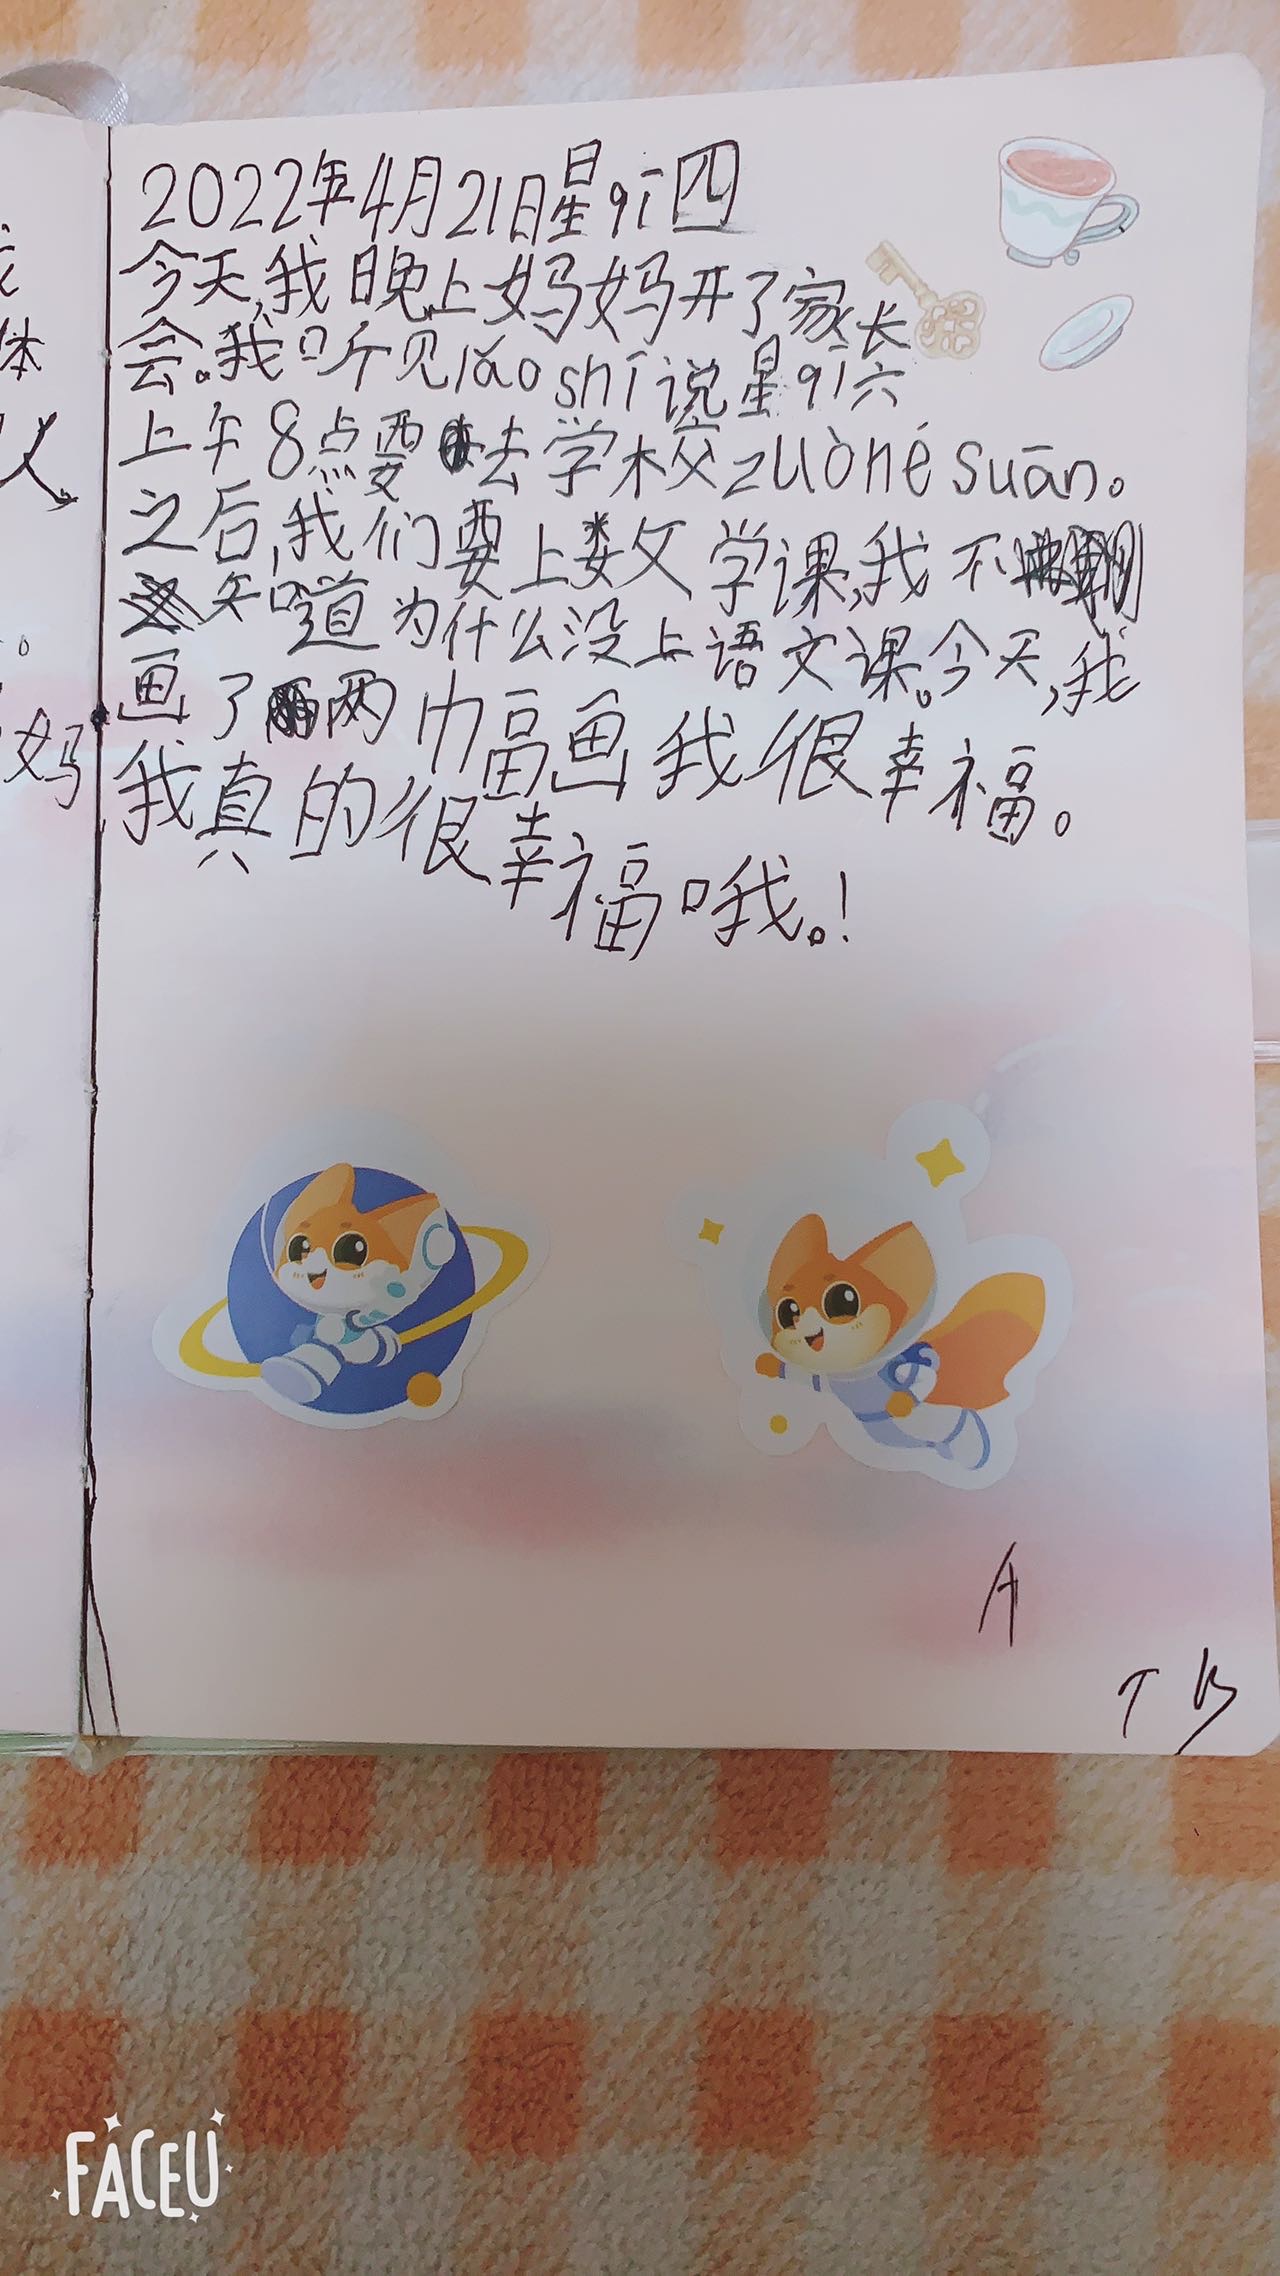 2022年4月21日星qī四
今天,我晚上妈妈开了家长
会。我听见lǎo shī说星qī六
上午8点要去学校zuò hé suān。
之后,我们要上数学课,我不
知道为什么没上语文课。今天,我
画了两巾畐画我很幸福。
我真的很幸福哦。!
体
人
妈
A
T B
FACEU